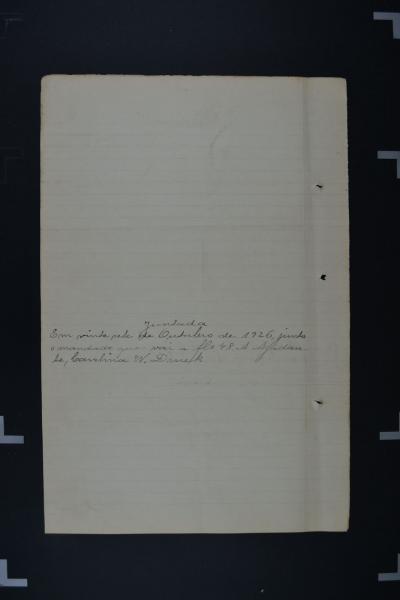 Juntada
Em vinte sete de Outubro de 1926, junto
o mandado que vai a fls 48. A Ajudan-
te, Carolina W.